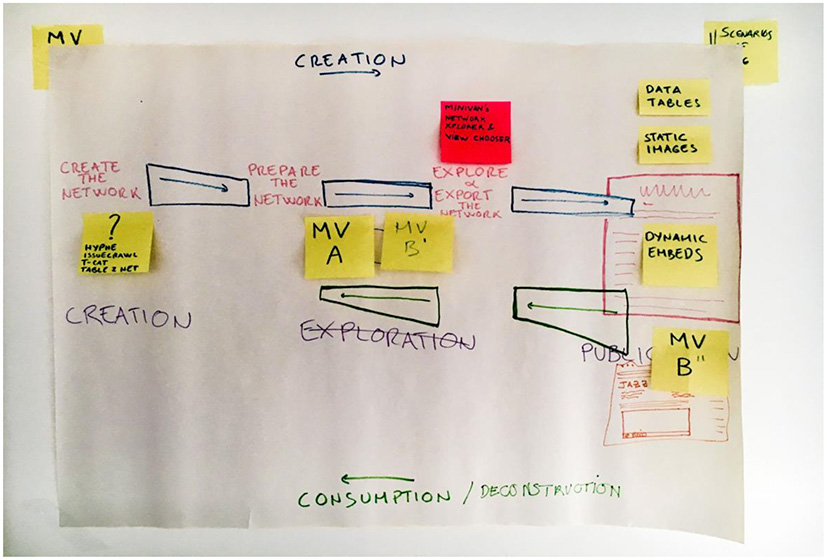 MV
CREATION
SCENARIOS
DATA
TABLES
MINIVAN'S
NETWORK
XPLORER &
VIEW CHOOSER
STATIC
IMAGES
CREATE
THE
NETWORK
PREPARE
THE
NETWORK
EXPLORE
&
EXPORT
THE
NETWORK
?
HYPHE
ISSUECRAWL
T-CAT
TABLE 2 NET
MV
A
MV
B'
DYNAMIC
EMBEDS
CREATION
EXPLORATION
MV
B"
JAZZ
CONSUMPTION / DECONSTRUCTION